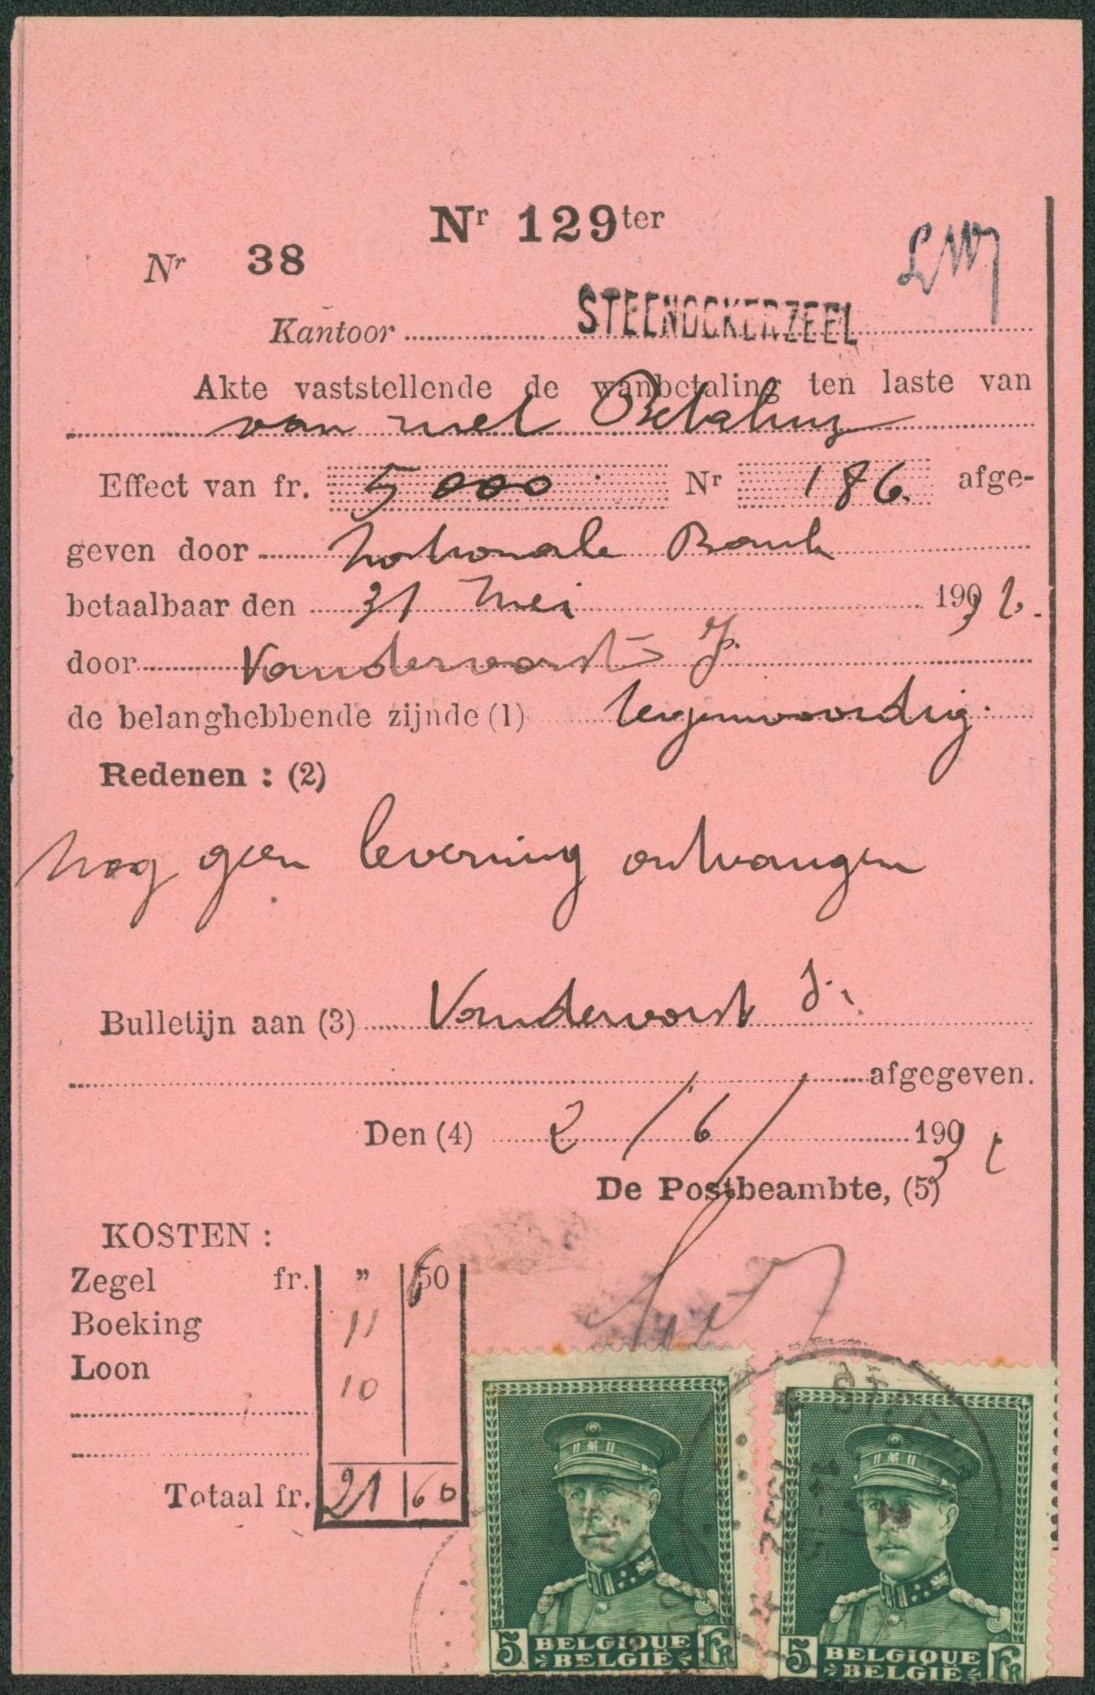 Nr 129ter
Nr 38
Kantoor STEENOCKERZEEL
Akte vaststellende de wanbetaling ten laste van
van niet Betaling
Effect van fr. 5000 Nr 186. afge-
geven door Nationale Bank
betaalbaar den 31 Mei 1932.
door Vandervorst J.
de belanghebbende zijnde (1) tegenwoordig.
Redenen : (2)
Nog geen levering ontvangen
Bulletijn aan (3) Vandervorst J.
afgegeven.
Den (4) 2/6/ 1932
De Postbeambte, (5)
KOSTEN :
Zegel fr. " 60
Boeking 11
Loon 10
Totaal fr. 21 60
5 BELGIQUE BELGIË FR
5 BELGIQUE BELGIË FR